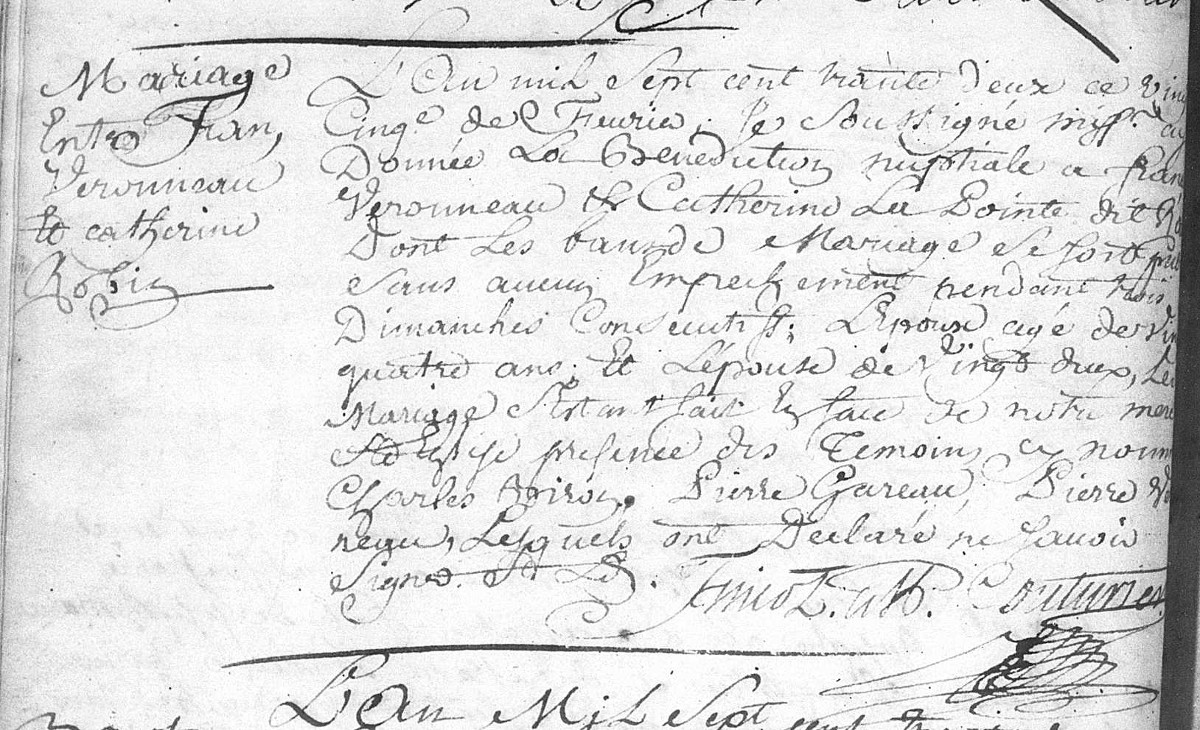 Mariage
Entre Fran,
Veronneau
Et catherine
Robin
L'An mil Sept cent trante deux ce vin
Cinqe de Fevrier, Je Soussigné miss.re ay
Donnée La Benediction nuptiale a fran
Veronneau & Catherine La Pointe dit Ro
Dont Les bans de Mariage se sont
Sans aucun Empeschement pendant trois
Dimanches Consecutifs; L'Epoux agé de Vin
quatre ans, Et L'épouse de Vingt deux, Le
Mariage S'Estant fait En face de notre mere
Ste Eglise presence des Temoins cy nomm
Charles Pierre Gareau, Pierre Ve
neau, Lesquels ont Declaré ne Savoir
Signe.
Couturier
L'An Mil Sept cent